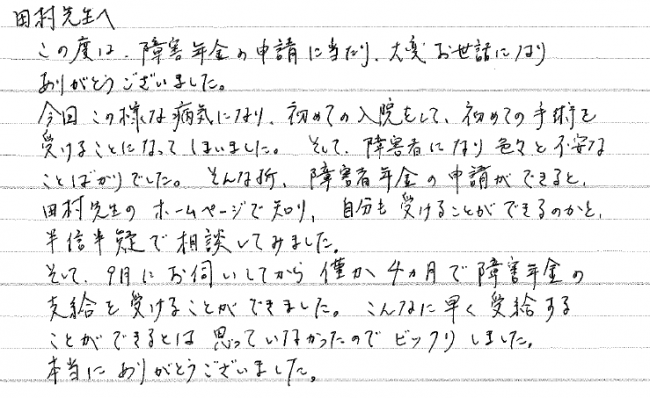 田村先生へ
この度は、障害年金の申請に当たり、大変お世話になり
ありがとうございました。
今回この様な病気になり、初めての入院をして、初めての手術を
受けることになってしまいました。そして、障害者になり色々と不安な
ことばかりでした。そんな折、障害者年金の申請ができると、
田村先生のホームページで知り、自分も受けることができるのかと、
半信半疑で相談してみました。
そして、9月にお伺いしてから僅か4ヵ月で障害年金の
支給を受けることができました。こんなに早く受給する
ことができるとは思っていなかったのでビックリしました。
本当にありがとうございました。